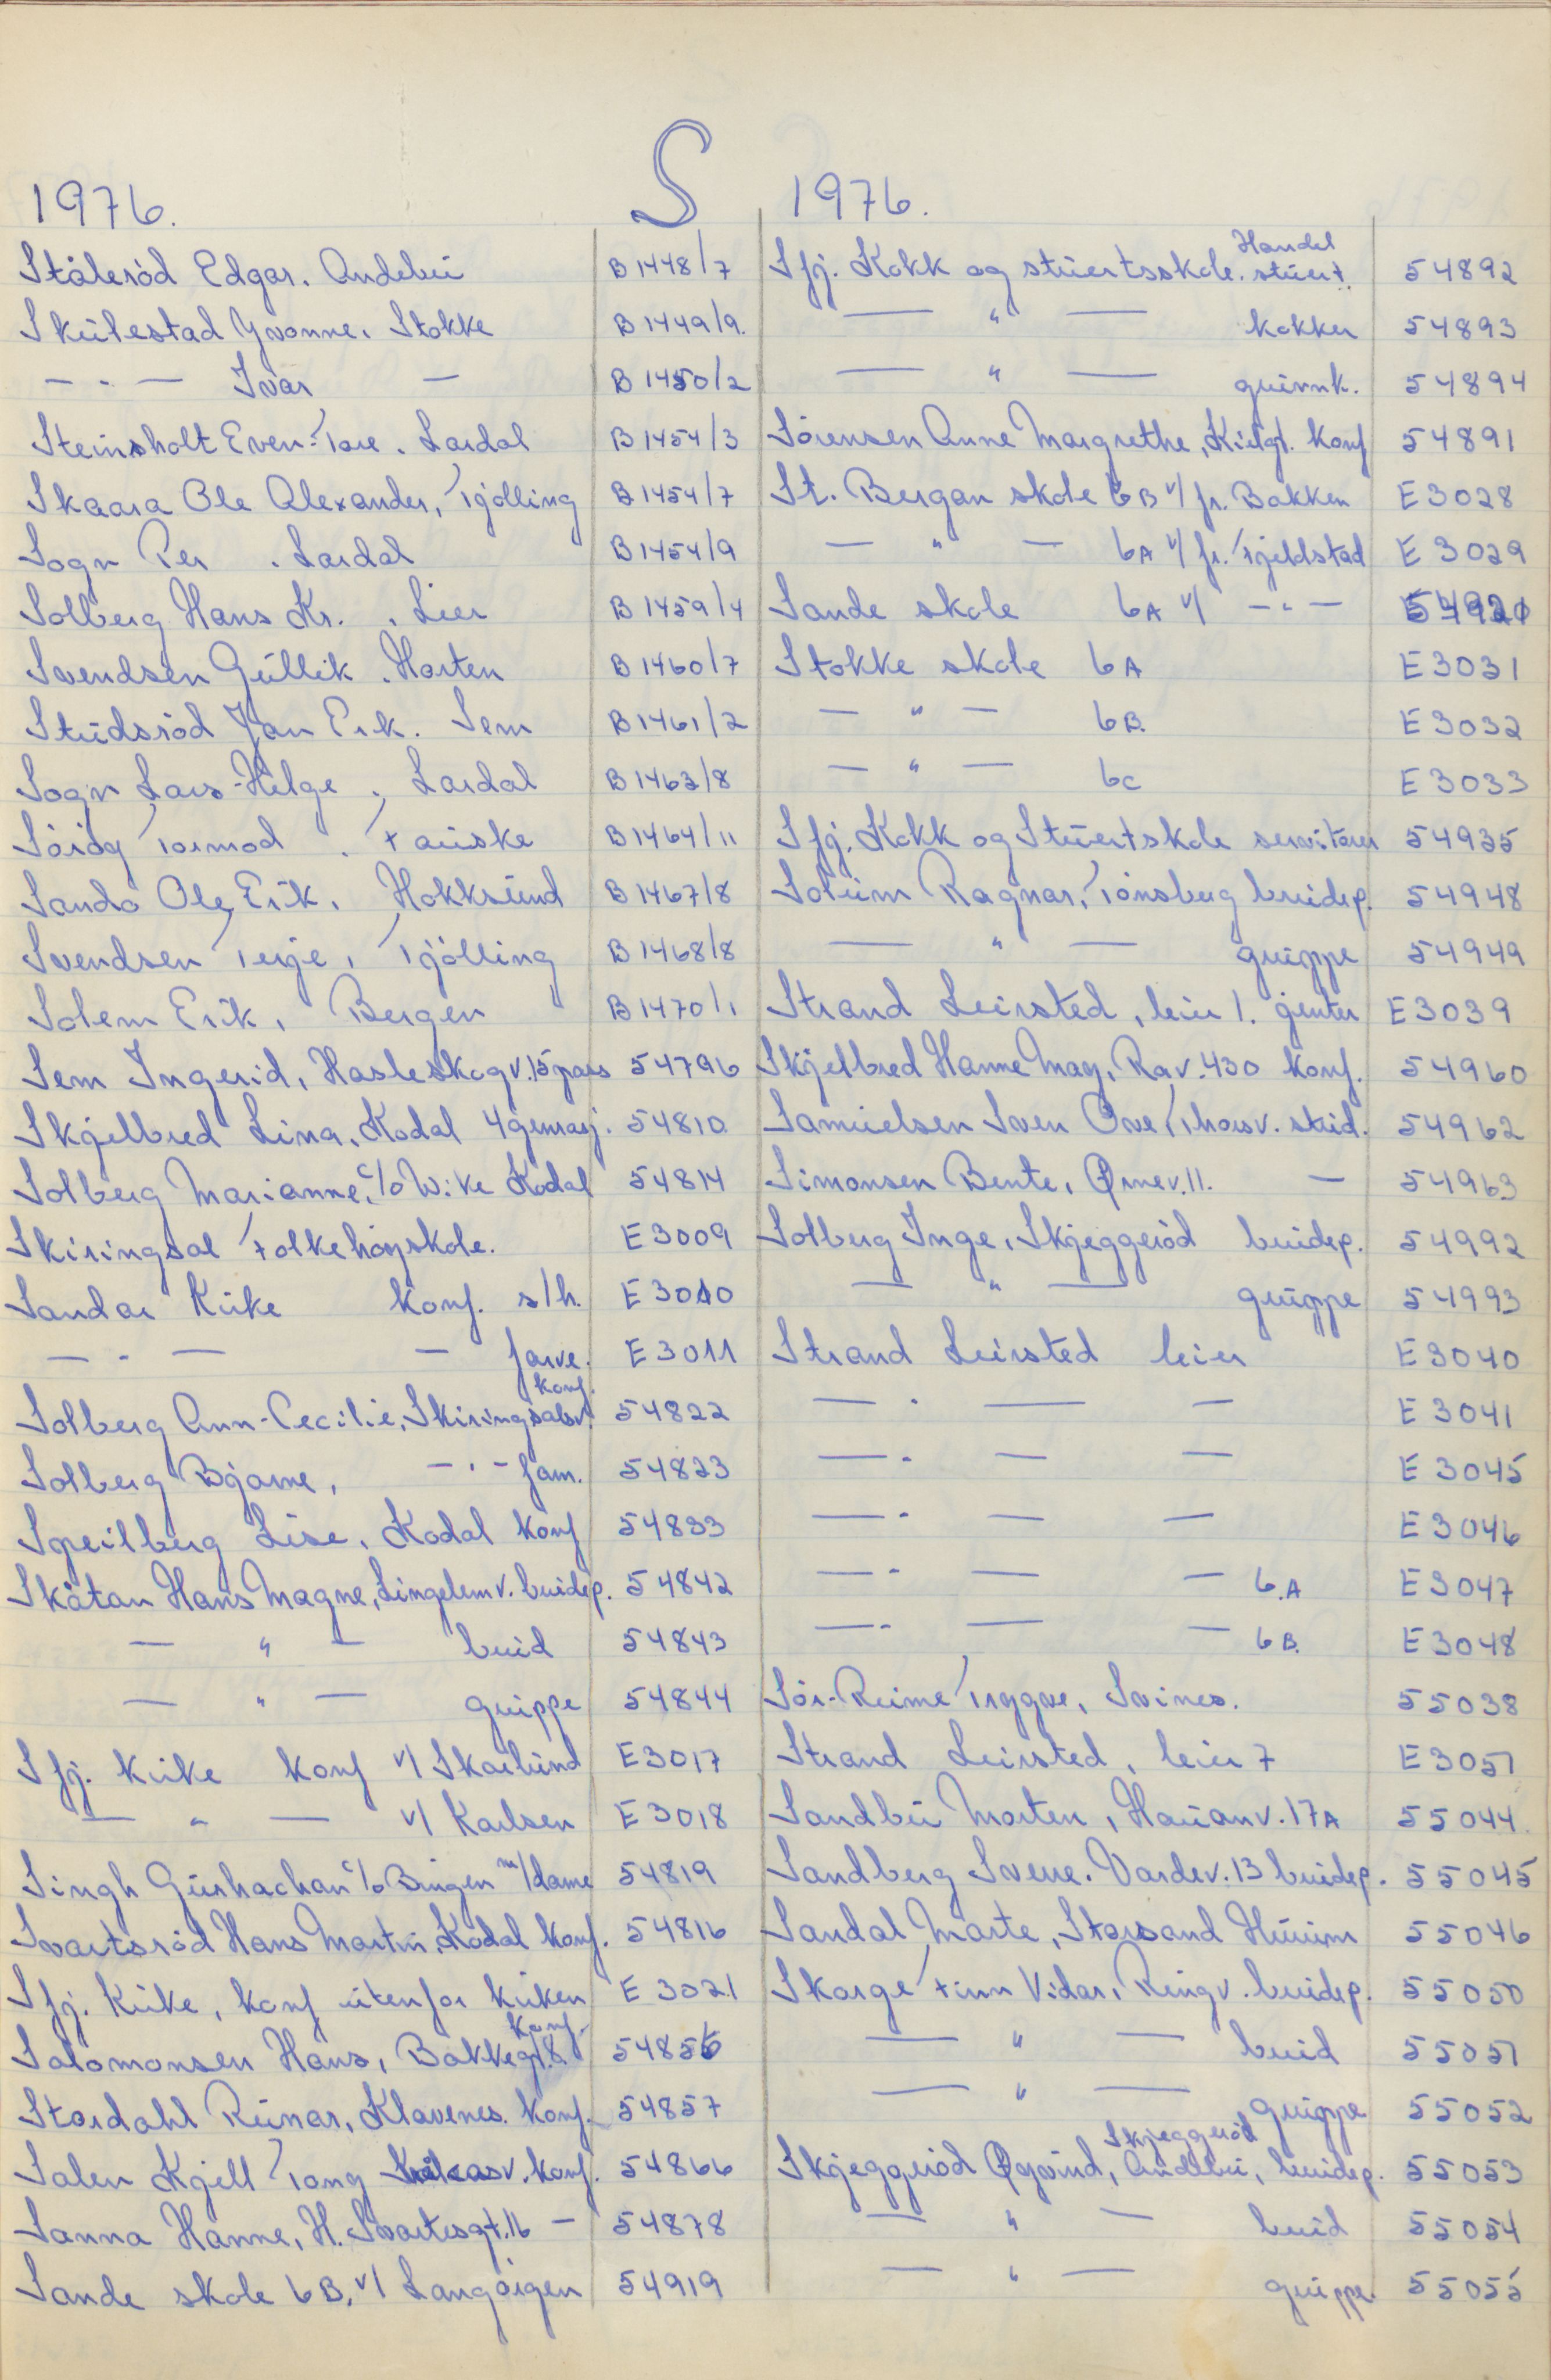 S
1976.
Stålerød Edgar. Andebu B1448/7
Skulestad Yvonne. Stokke B1449/9.
— " — Ivar — B1450/2
Steinsholt Even-Tore. Lardal B1454/3
Skaara Ole Alexander, Tjølling B1454/7
Sogn Per . Lardal B1454/9
Solberg Hans Kr. . Lier B1459/4
Svendsen Gullik . Horten B1460/7
Studsrød Jan Erik. Sem B1461/2
Sogn Lars-Helge . Lardal B1463/8
Sörög Tormod . Fauske B1464/11
Sando Ole Erik. Hokksund B1467/8
Svendsen Terje, Tjölling B1468/8
Solem Erik, Bergen B1470/1
Sem Ingerid, Hasleskogv. 15 pass 54796
Skjelbred Lina, Kodal 4 genrasj. 54810
Solberg Marianne, c/o Wike Kodal 54814
Skiringsal Folkehøyskole. E3009
Sandar Kirke konf. s/h. E3010
— " — — farve. E3011
Solberg Ann-Cecilie, Skiringsalsv. konf. 54822
Solberg Bjarne, — " — fam. 54823
Speilberg Lise, Kodal konf 54833
Skåtan Hans Magne, Lingelemv. brudep. 54842
— " — brud 54843
— " — gruppe 54844
Sfj. kirke konf v/ Skarlund E3017
— " — v/ Karlsen E3018
Singh Gurbachan c/o Bringen m/dame 54819
Svartsrød Hans Martin, Kodal konf. 54816
Sfj. Kirke, konf utenfor kirken E3021
Salomonsen Hans, Bakkegt. 8. konf. 54856
Stordahl Runar, Klavenes. konf. 54857
Salen Kjell Tony konf. 54866
Sanna Hanne, H. Svartesgt. 16 — 54878
Sande skole 6B, v/ Langörgen 54919
1976.
Sfj. Kokk og stuertsskole. Handel stuert. 54892
— " — kokker 54893
— " — grunnk. 54894
Sörensen Anne Margrethe, Kirkgt. konf 54891
St. Bergan skole 6B v/ fr. Bakken E3028
— " — 6A v/ fr. Fjeldstad E3029
Sande skole 6A v/ — " — 54920
Stokke skole 6A E3031
— " — 6B. E3032
— " — 6c E3033
Sfj. Kokk og Stuertskole servitører 54935
Solum Ragnar, Tønsberg brudep. 54948
— " — gruppe 54949
Strand Leirsted, leir 1. jenter E3039
Skjelbred Hanne May, Rav. 430 konf. 54960
Samuelsen Sven Ove, Thorsv. stud. 54962
Simonsen Bente, Ørnev. 11. — 54963
Solberg Inge, Skjeggerød brudep. 54992
— " — gruppe 54993
Strand Leirsted leir E3040
— " — — E3041
— " — — E3045
— " — — E3046
— " — — 6.A E3047
— " — — 6B. E3048
Sör-Reime Tryggve, Svines. 55038
Strand Leirsted, leir 7 E3051
Sandbu Morten, Hauanv. 17A 55044.
Sandberg Sverre. Vardev. 13 brudep. 55045
Sandal Marte, Storsand Hurum 55046
Skorge Finn Vidar, Ringv. brudep. 55050
— " — brud 55051
— " — gruppe 55052
Skjeggerød Øyvind, Skjeggerød Andebu, brudep. 55053
— " — brud 55054
— " — gruppe. 55055